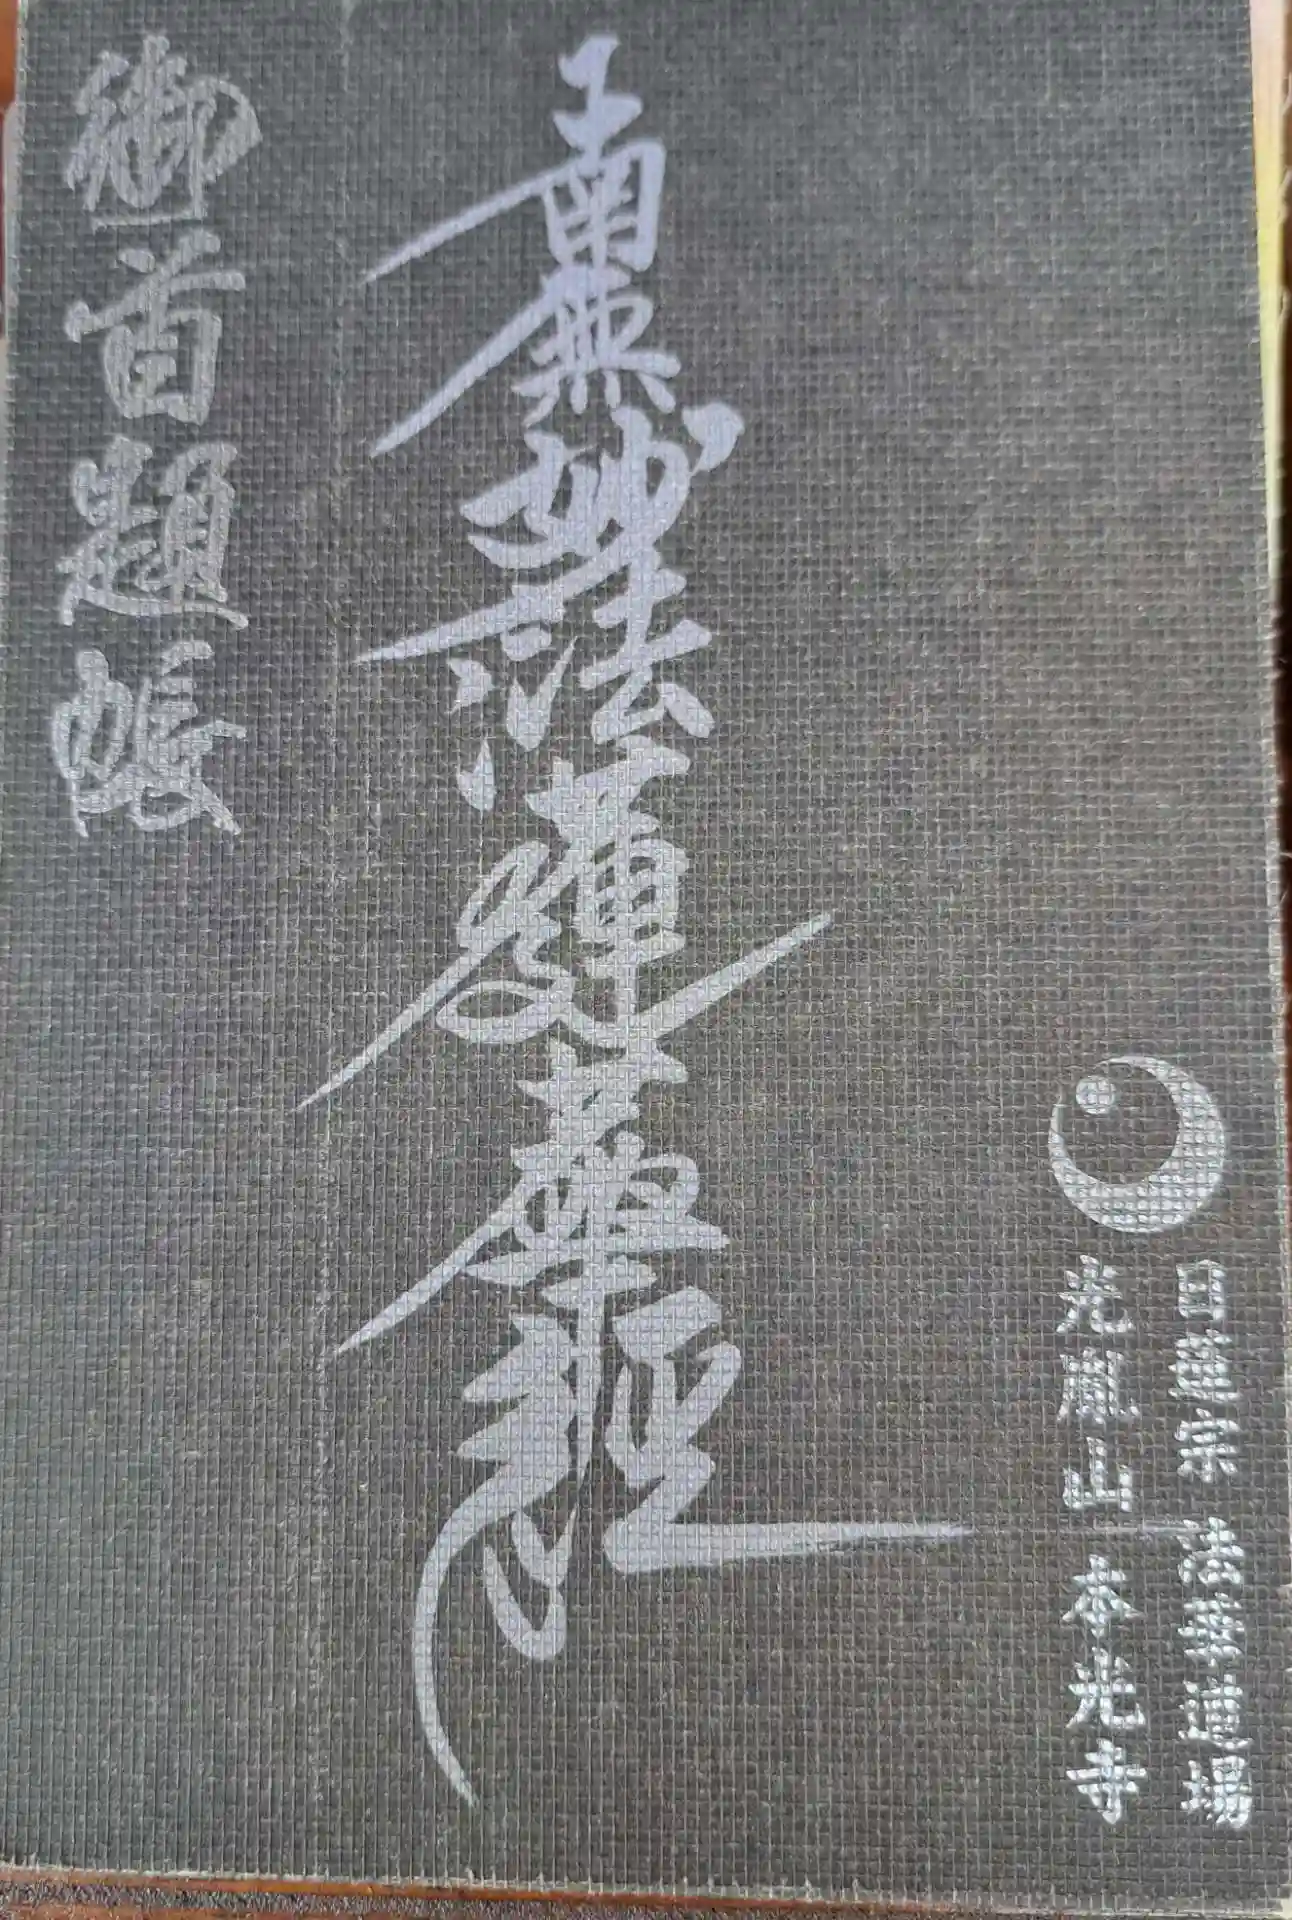 日蓮宗 法華道場
光胤山 本光寺
南無妙法蓮華経
御首題帳